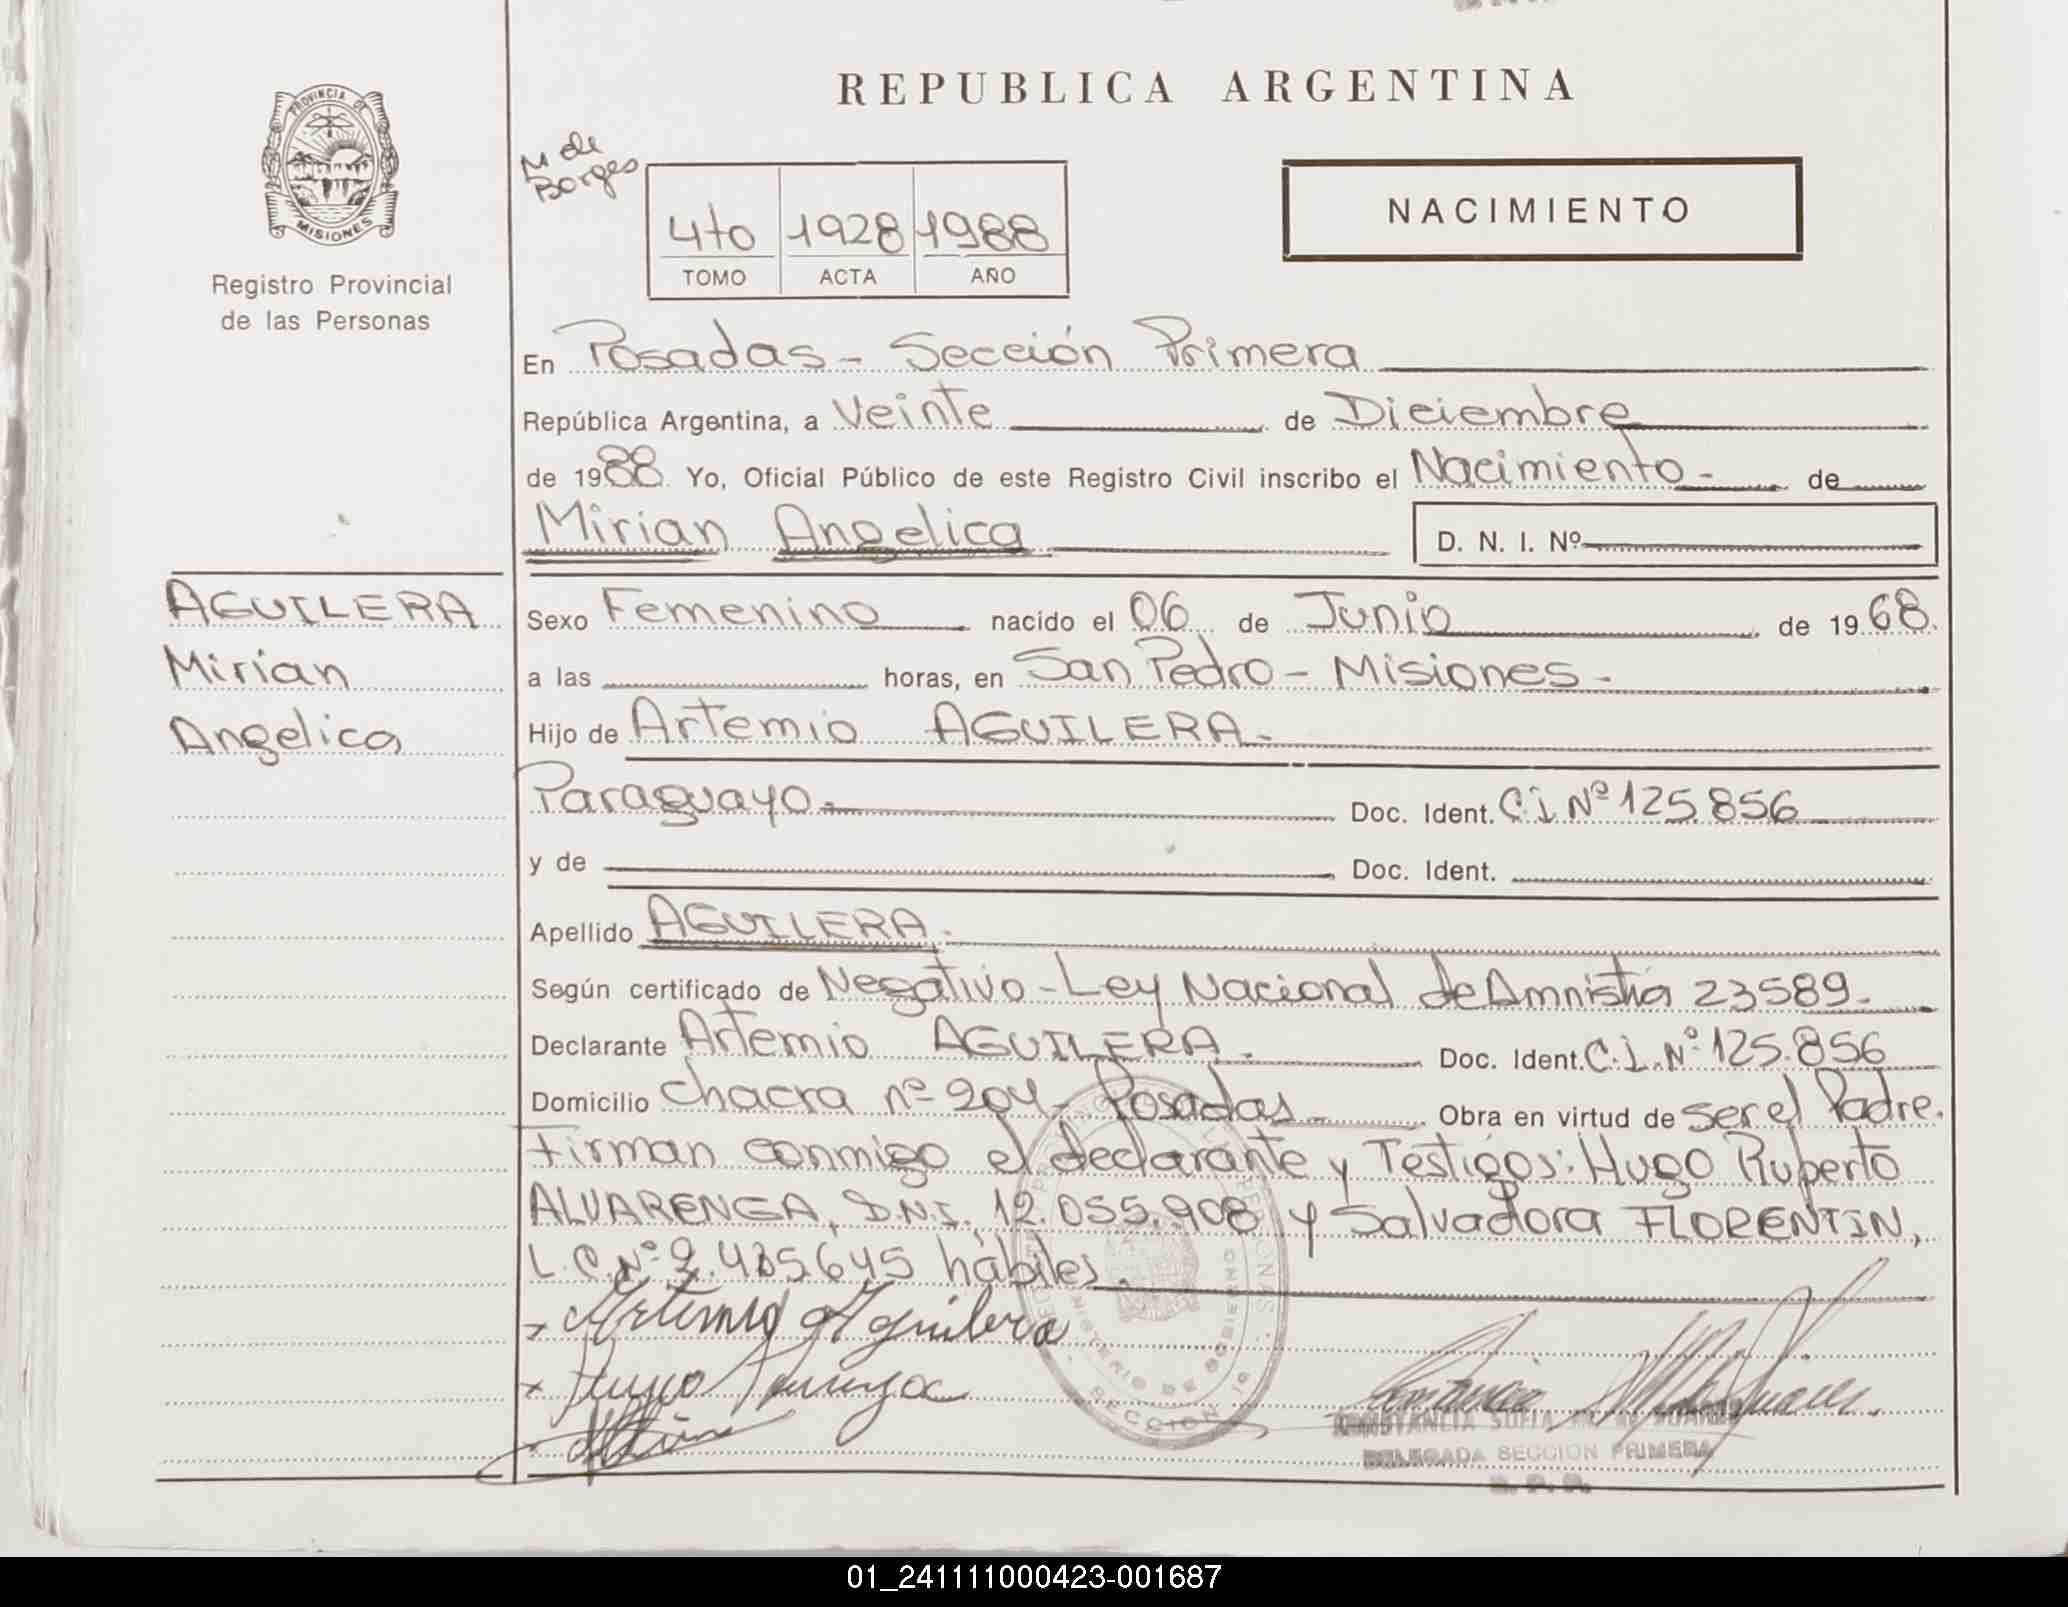 REPUBLICA ARGENTINA
PROVINCIA DE
MISIONES
Registro Provincial
de las Personas
M de
Borges
4to 1928 1988
TOMO ACTA AÑO
NACIMIENTO
En Posadas - Sección Primera
República Argentina, a Veinte de Diciembre
de 1988 Yo, Oficial Público de este Registro Civil inscribo el Nacimiento - de
Mirian Angelica D. N. I. Nº
AGUILERA
Mirian
Angelica
Sexo Femenino nacido el 06 de Junio de 1968.
a las horas, en San Pedro - Misiones -
Hijo de Artemio AGUILERA.
Paraguayo. Doc. Ident. C.I Nº 125.856
y de Doc. Ident.
Apellido AGUILERA.
Según certificado de Negativo - Ley Nacional de Amnistía 23589.
Declarante Artemio AGUILERA. Doc. Ident. C.I. Nº 125.856
Domicilio chacra nº 204 - Posadas - Obra en virtud de ser el Padre.
Firman conmigo el declarante y Testigos: Hugo Ruperto
ALVARENGA, D.N.I. 12.055.908 y Salvadora FLORENTIN,
L.C. Nº 2.485645 hábiles.
x Artemio Aguilera
x Hugo
SECCION 1ª
MINISTERIO DE GOBIERNO
CONSTANCIA SOFIA
DELEGADA SECCION PRIMERA
R. P. P.
01_241111000423-001687